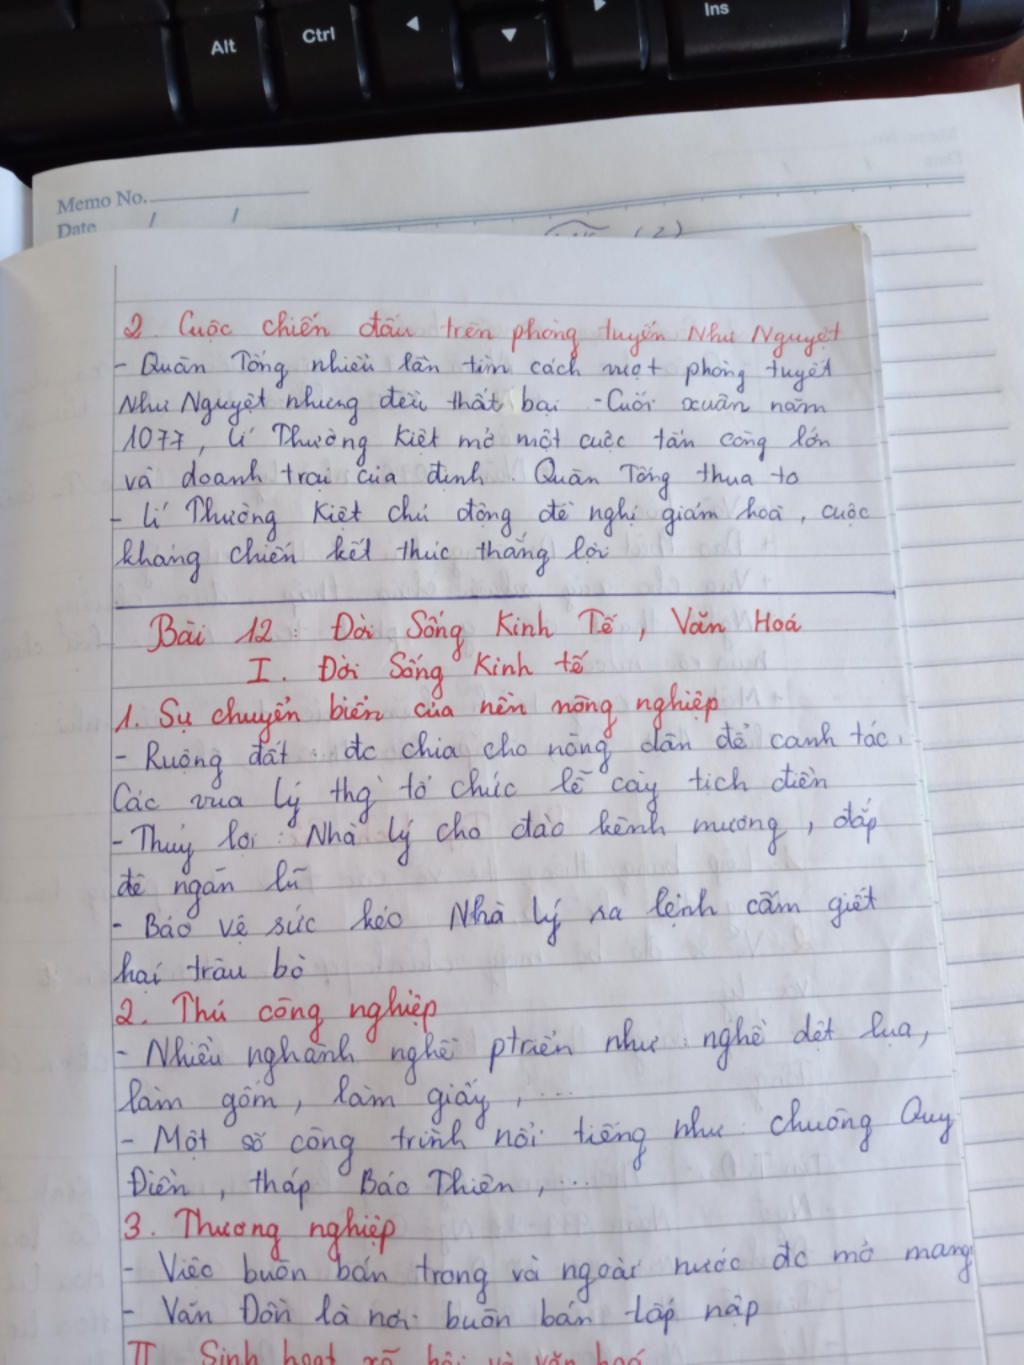 Alt
Ctrl
Ins
Memo No.
Date / /
(2)
2. Cuộc chiến đấu trên phòng tuyến Như Nguyệt
- Quân Tống nhiều lần tìm cách vượt phòng tuyết
Như Nguyệt nhưng đều thất bại - Cuối xuân năm
1077, Lí Thường Kiệt mở một cuộc tấn công lớn
và doanh trại của định. Quân Tống thua to
- Lí Thường Kiệt chủ động đề nghị giảm hoà, cuộc
kháng chiến kết thúc thắng lợi
Bài 12: Đời Sống Kinh Tế, Văn Hoá
I. Đời Sống Kinh tế
1. Sự chuyển biến của nền nông nghiệp
- Ruộng đất: đc chia cho nông dân để canh tác.
Các vua Lý thg tổ chức lễ cày tịch điền
- Thuỷ lợi: Nhà Lý cho đào kênh mương, đắp
đê ngăn lũ
- Bảo vệ sức kéo Nhà Lý ra lệnh cấm giết
hại trâu bò
2. Thủ công nghiệp
- Nhiều nghành nghề ptriển như: nghề dệt lụa,
làm gốm, làm giấy, ...
- Một số công trình nổi tiếng như: chuông Quy
Điền, tháp Báo Thiên, ...
3. Thương nghiệp
- Việc buôn bán trong và ngoài nước đc mở mang
- Vân Đồn là nơi buôn bán tấp nập
II Sinh hoạt xã hội và văn hoá